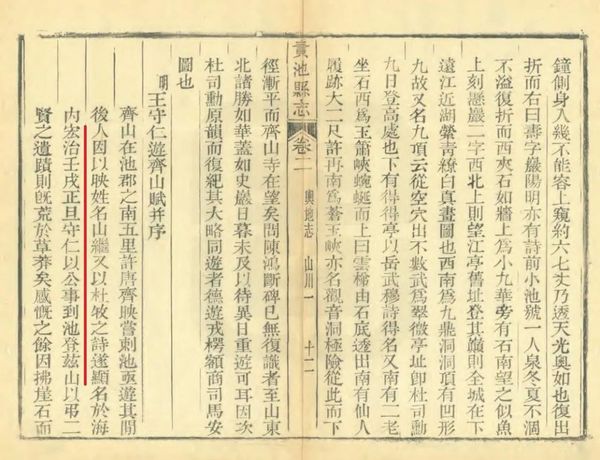 鐘側身入幾不能容上窺約六七丈乃透天光奥如也復出
折而右曰壽字巖陽明亦有詩前小池號一人泉冬夏不涸
不溢復折而西夾石如牆上爲小九華旁有石南望之似魚
上刻懸巖二字西北上則望江亭舊址登其巔則全城在下
遠江近湖螢青繚白眞畫圖也西南爲九鼎洞洞項有凹形
九故又名九項云從空穴出不數武爲翠微亭址卽杜司勳
九日登高處也下有得得亭以岳武穆詩得名又南有二老
坐石西爲玉簫峽蜿蜒而上曰雲梯由石底透出南有仙人
履跡大二尺許再南爲蒼玉峽亦名觀音洞極險從此而下
貴池縣志
卷二
輿地志
山川一
十二
徑漸平而齊山寺在望矣問陳鴻斷碑已無復識者至山東
北諸勝如華蓋如史巖日暮未及以待異日重遊可耳因次
杜司勳原韻而復紀其大略同遊者德遊戎楞額商司馬安
圖也
明
王守仁遊齊山賦并序
齊山在池郡之南五里許唐齊映嘗刺池亟遊其閒
後人因以映姓名山繼又以杜牧之詩遂顯名於海
内宏治壬戌正旦守仁以公事到池登兹山以弔二
賢之遺蹟則旣荒於草莽矣感慨之餘因拂崖石而